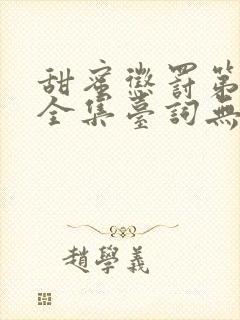 甜蜜懲罰第
全集臺詞無
趙學義